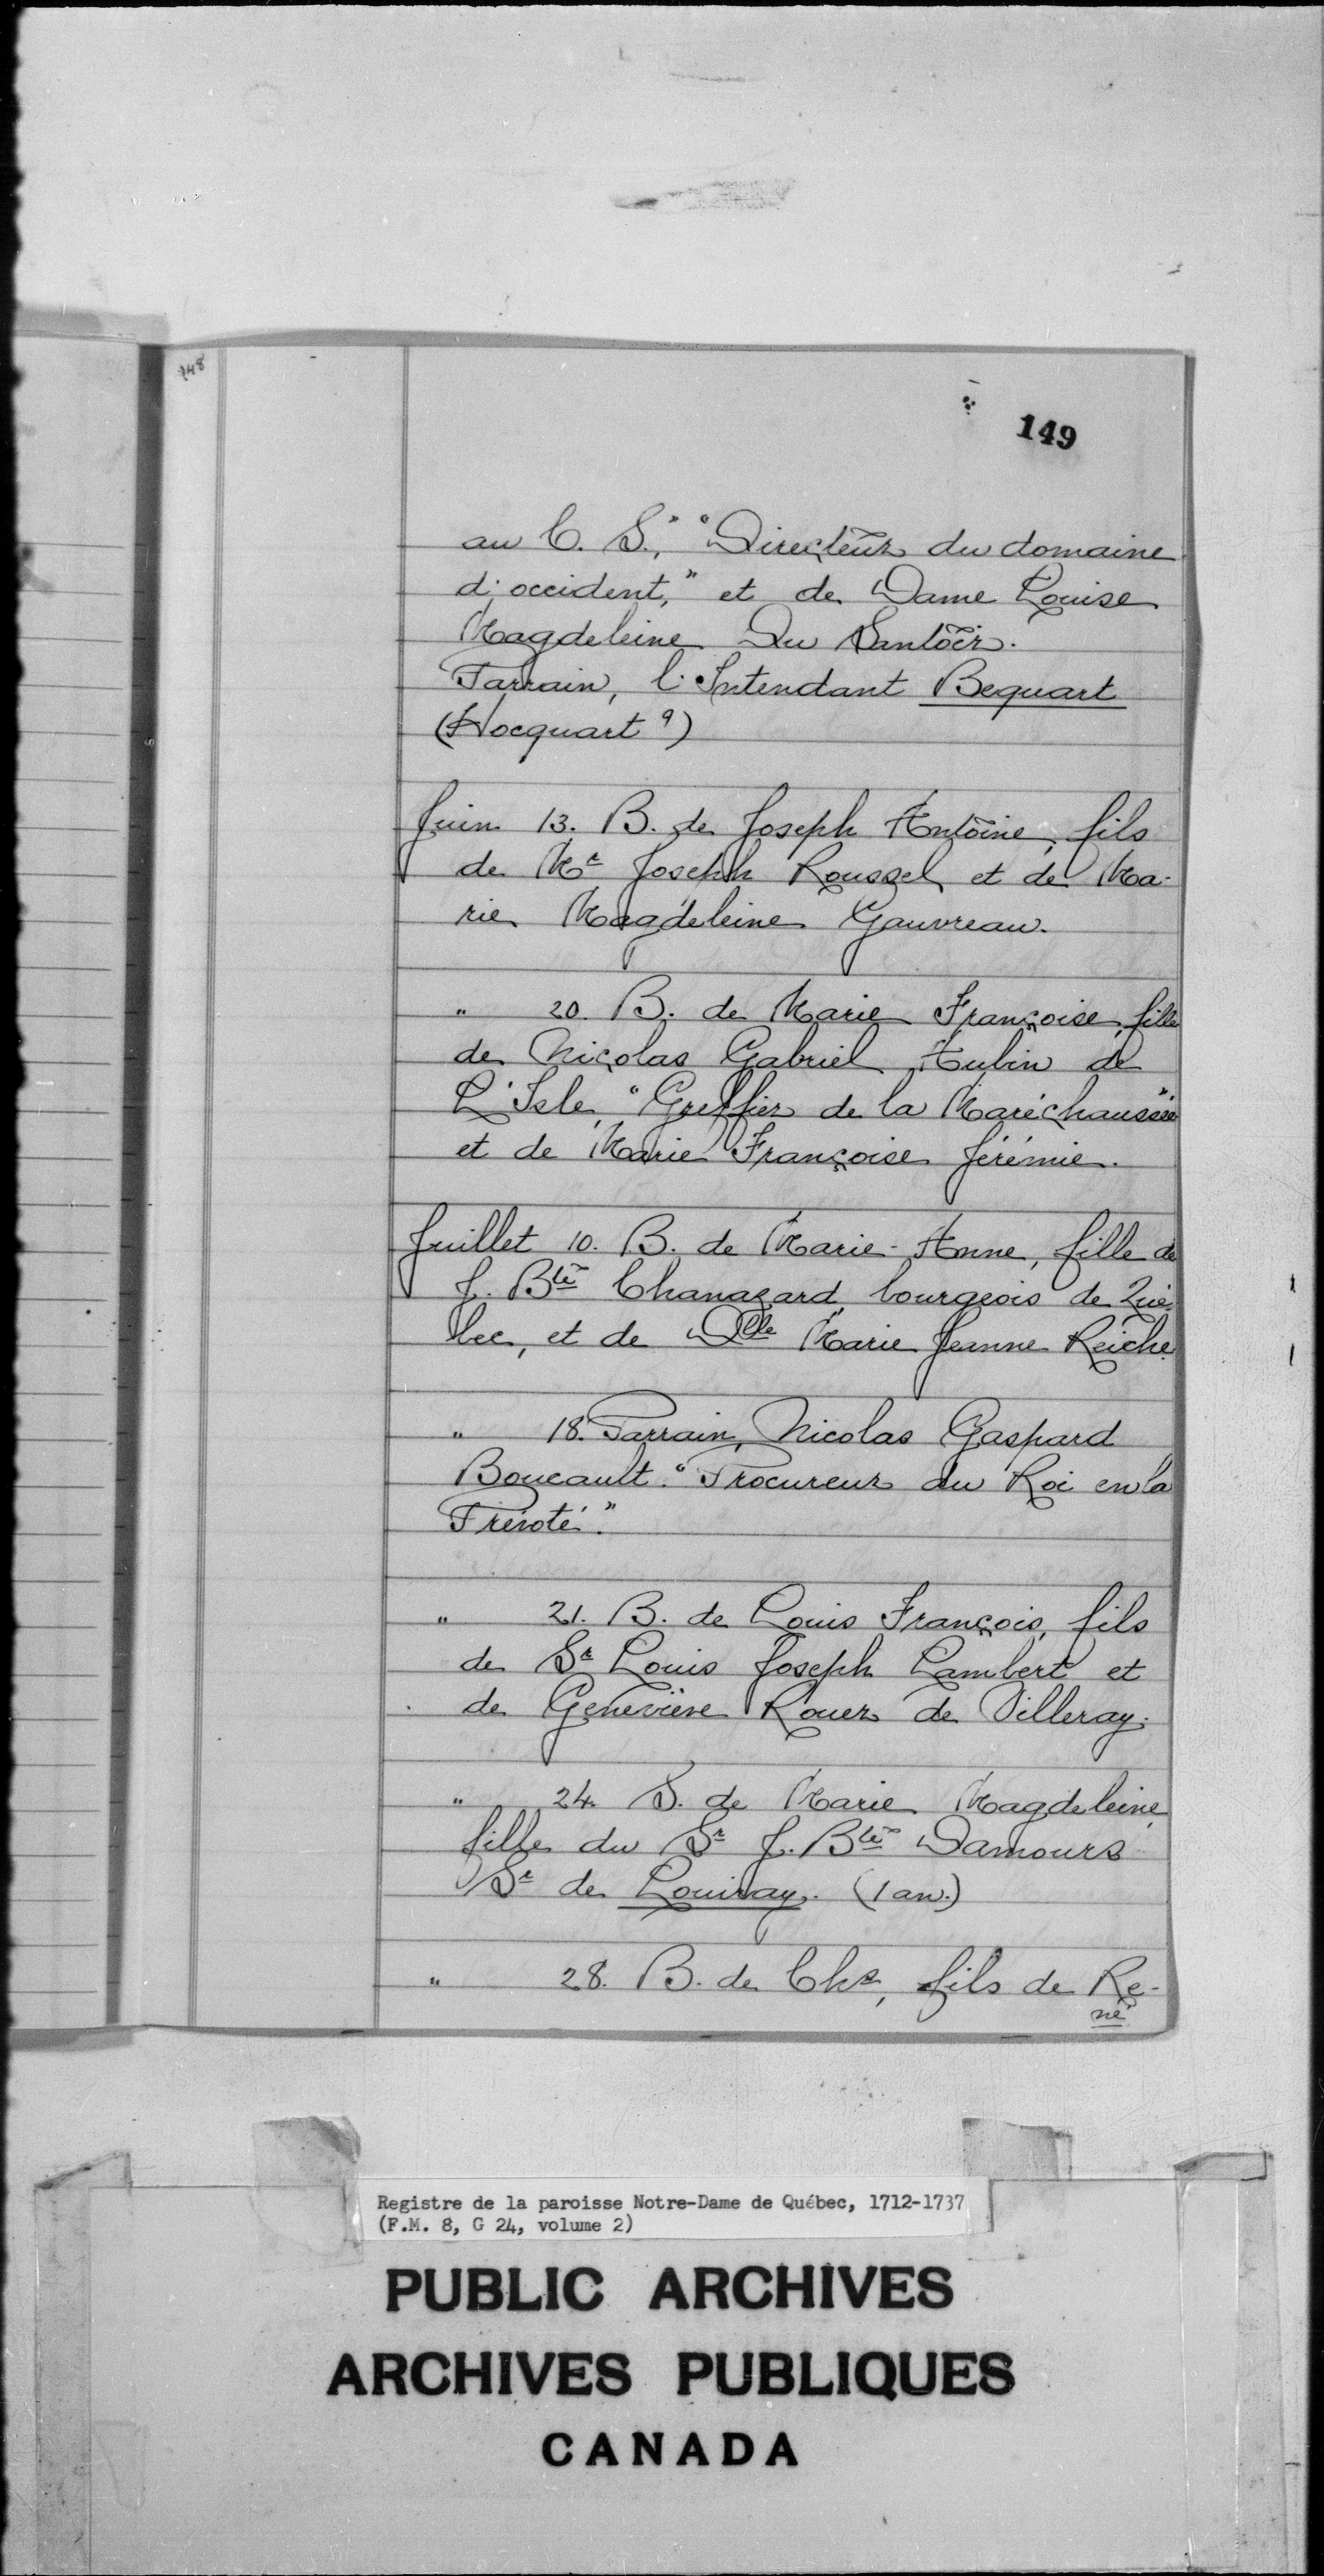 148
149
au C. S.", "Directeur du domaine
d'occident," et de Dame Louise
Magdeleine Du Santoir.
Parrain, l'Intendant Bequart
(Hocquart ?)
Juin 13. B. de Joseph Antoine, fils
de Mr Joseph Roussel et de Ma-
rie Magdeleine Gauvreau.
" 20. B. de Marie Françoise, fille
de Nicolas Gabriel Aubin de
L'Isle, "Greffier de la Maréchaussée"
et de Marie Françoise Jérémie.
Juillet 10. B. de Marie-Anne, fille de
J. Bte Chanazard, bourgeois de Qué-
bec, et de Dlle Marie Jeanne Reiche.
" 18. Parrain, Nicolas Gaspard
Boucault. "Procureur du Roi en la
Prévoté."
" 21. B. de Louis François, fils
de Sr Louis Joseph Lambert et
de Geneviève Rouer de Villeray.
" 24. S. de Marie Magdeleine,
fille du Sr J. Bte Damours
Sr de Louiray. (1 an.)
" 28. B. de Chs, fils de Re-
né
Registre de la paroisse Notre-Dame de Québec, 1712-1737
(F.M. 8, G 24, volume 2)
PUBLIC ARCHIVES
ARCHIVES PUBLIQUES
CANADA